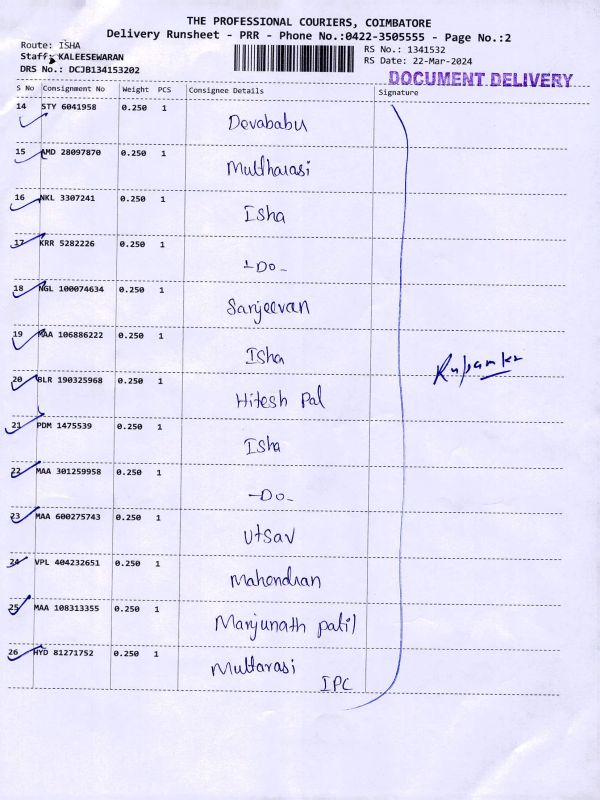 THE PROFESSIONAL COURIERS, COIMBATORE
Delivery Runsheet - PRR - Phone No.:0422-3505555 - Page No.:2
Route: ISHA
RS No.: 1341532
Staff: KALEESEWARAN
RS Date: 22-Mar-2024
DRS No.: DCJB134153202
DOCUMENT DELIVERY
S No Consignment No Weight PCS Consignee Details Signature
14 STY 6041958 0.250 1 Devababu
15 AMD 28097870 0.250 1 Mutharasi
16 NKL 3307241 0.250 1 Isha
17 KRR 5282226 0.250 1 -Do-
18 NGL 100074634 0.250 1 Sanjeevan
19 MAA 106886222 0.250 1 Isha
20 BLR 190325968 0.250 1 Hitesh Pal
21 PDM 1475539 0.250 1 Isha
22 MAA 301259958 0.250 1 -Do-
23 MAA 600275743 0.250 1 Utsav
24 VPL 404232651 0.250 1 Mahendran
25 MAA 108313355 0.250 1 Manjunath patil
26 HYD 81271752 0.250 1 Muttarasi
IPC